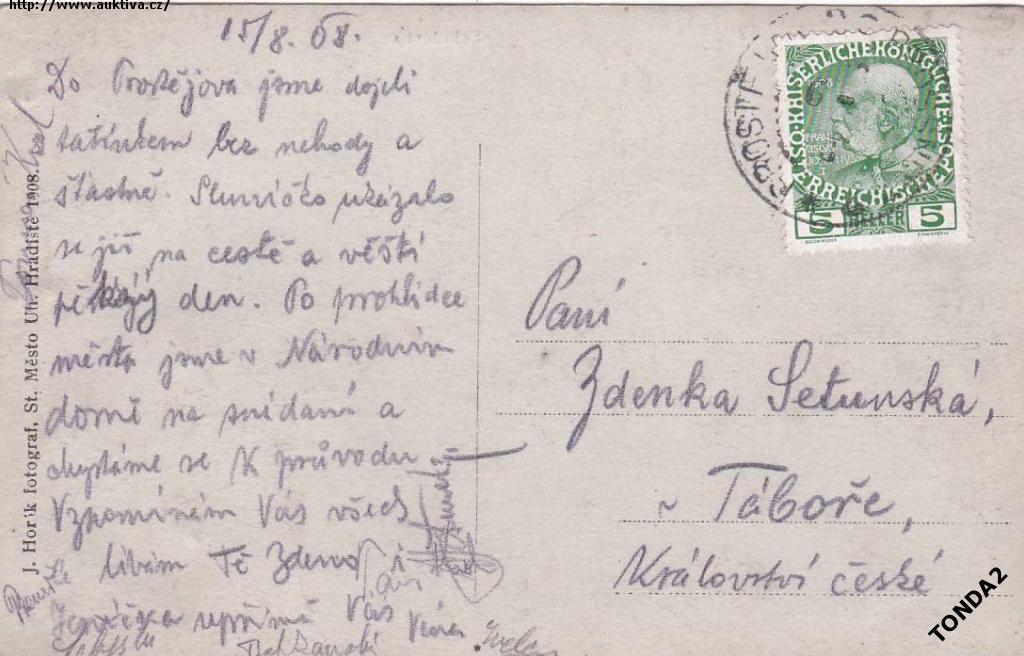 http://www.auktiva.cz/
15/8. 08.
Do Prostějova jsme dojeli
tatínkem bez nehody a
šťastně. Sluníčko ukázalo
se již na cestě a věští
den. Po prohlídce
města jsme v Národním
domě na snídani a
chystáme se k průvodu
Vzpomínám Vás všech
líbám Tě Zdeno i
upřímně Vás
J. Horik fotograf, St. Město Uh. Hradiště 1908.
PROSTĚ
KAISERLICHE KÖNIGLICHE ÖSTERREICHISCHE POST
FRANCISCUS JOSEPHUS I
5 HELLER 5
Paní
Zdenka Setunská,
v Táboře,
Království české
TONDA2